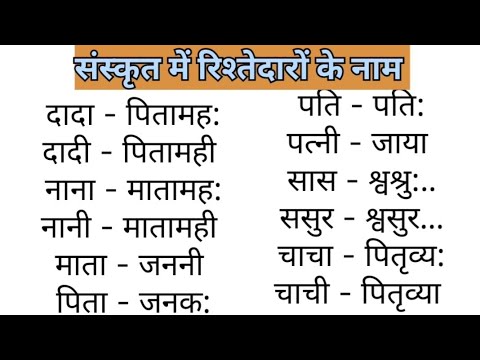 संस्कृत में रिश्तेदारों के नाम
दादा - पितामह:
दादी - पितामही
नाना - मातामह:
नानी - मातामही
माता - जननी
पिता - जनक:
पति - पति:
पत्नी - जाया
सास - श्वश्रु:..
ससुर - श्वसुर...
चाचा - पितृव्य:
चाची - पितृव्या